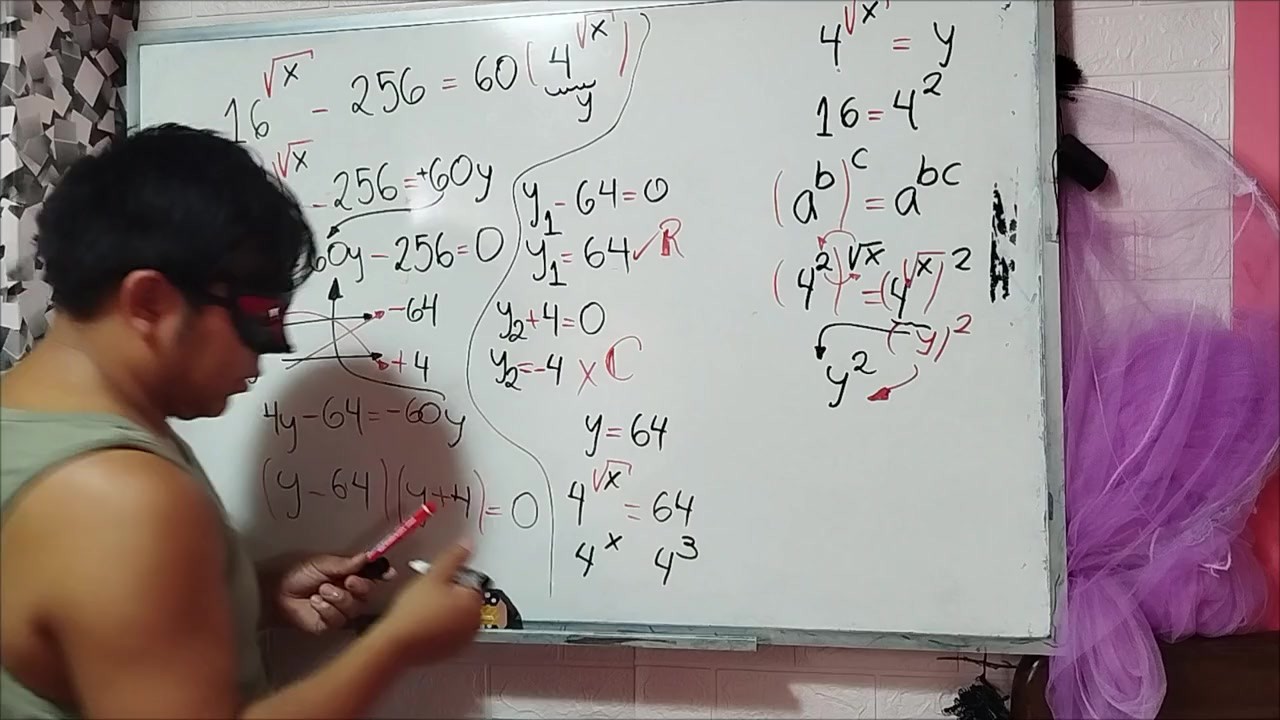 16^√x - 256 = 60(4^√x)
y
√x - 256 = +60y
60y - 256 = 0
-64
+4
4y - 64 = -60y
(y - 64)(y + 4) = 0
y₁ - 64 = 0
y₁ = 64 ✓ R
y₂ + 4 = 0
y₂ = -4 x C
y = 64
4^√x = 64
4^x 4^3
4^√x = y
16 = 4^2
(a^b)^c = a^bc
(4^2)^√x = (4^√x)^2
(y)^2
y^2